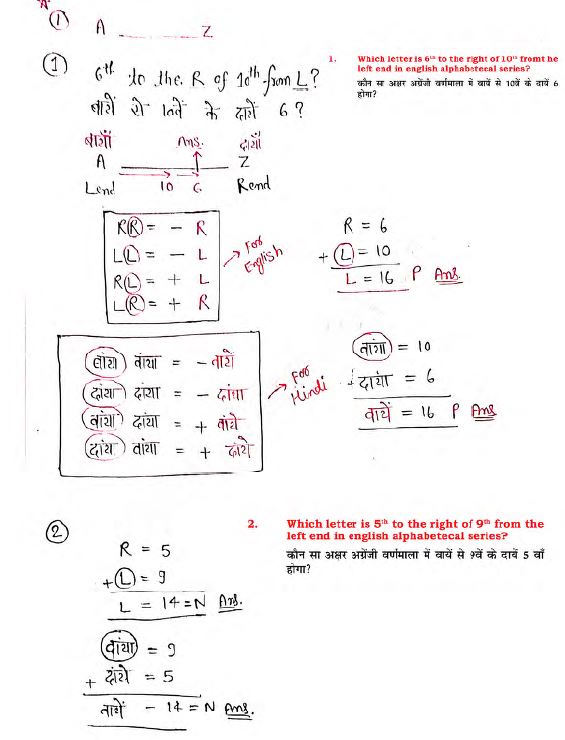 'A'
① A ________ Z
① 6th to the R of 10th from L?
बायें से 10वें के दायें 6 ?
बायाँ Ans. दायाँ
A Z
Lend 10 6 Rend
RR = - R
LL = - L
RL = + L
LR = + R
For English
R = 6
+ L = 10
L = 16 P Ans.
बांया बांया = - बांये
दांया दांया = - दांया
बांया दांया = + बांये
दांया बांया = + दांये
For Hindi
बांया = 10
+ दांया = 6
बायें = 16 P Ans
1. Which letter is 6th to the right of 10th fromt he
left end in english alphabetecal series?
कौन सा अक्षर अंग्रेंजी वर्णमाला में बायें से 10वें के दायें 6
होगा?
②
R = 5
+ L = 9
L = 14 = N Ans.
बांया = 9
+ दांये = 5
बायें - 14 = N Ans.
2. Which letter is 5th to the right of 9th from the
left end in english alphabetecal series?
कौन सा अक्षर अग्रेंजी वर्णमाला में बायें से 9वें के दायें 5 वाँ
होगा?